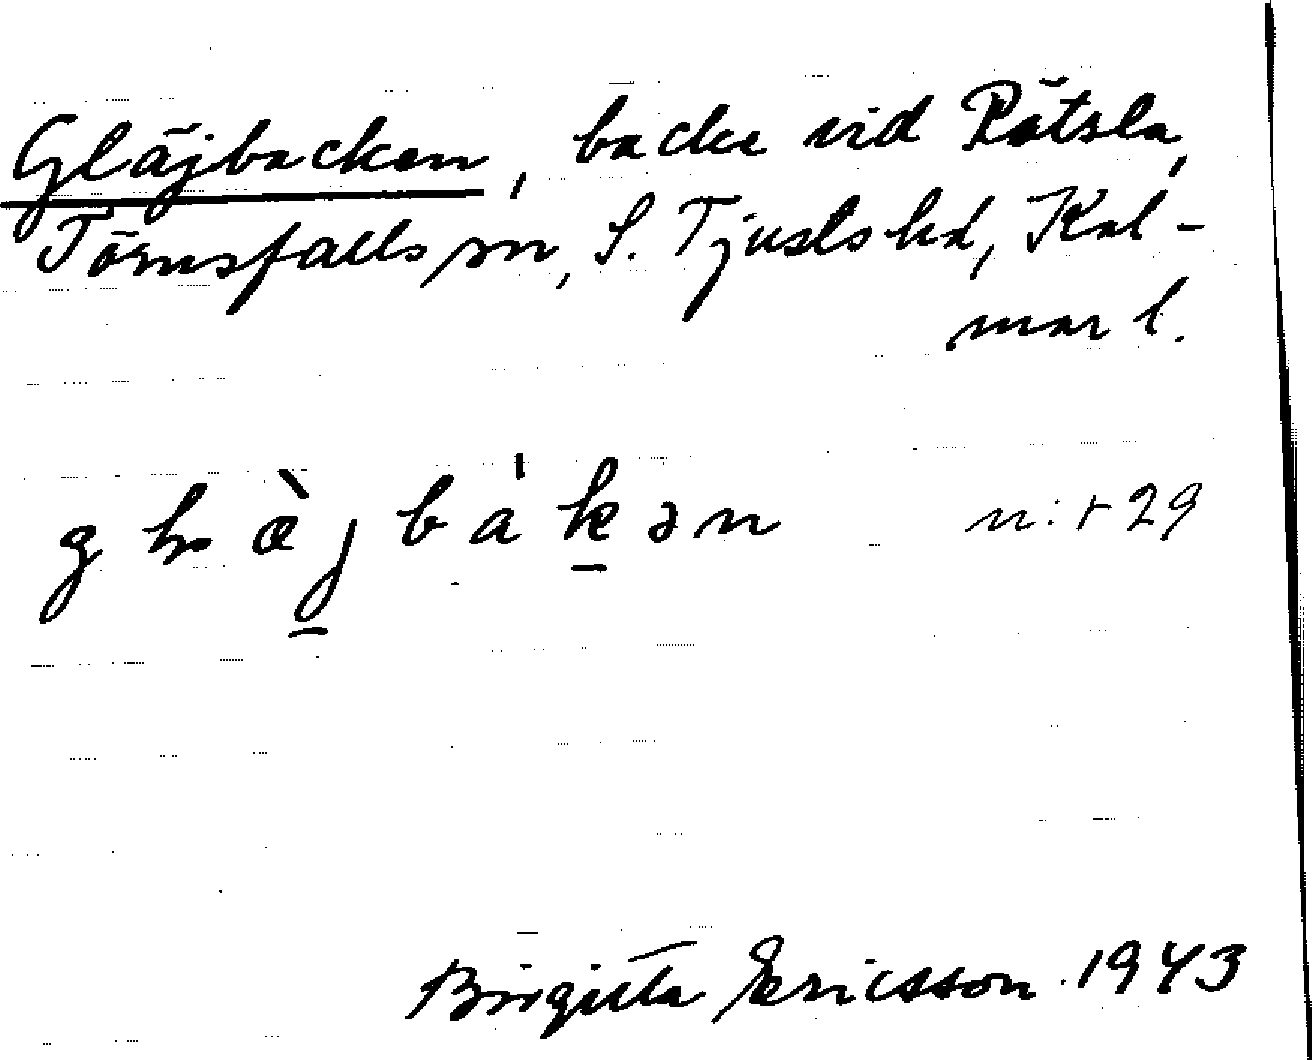 Gläjbacken, backe vid Påtsla,
Törnsfalls sn, S. Tjusts hd, Kal-
mar l.
bákən n:r 29
Birgitta Ericsson 1943